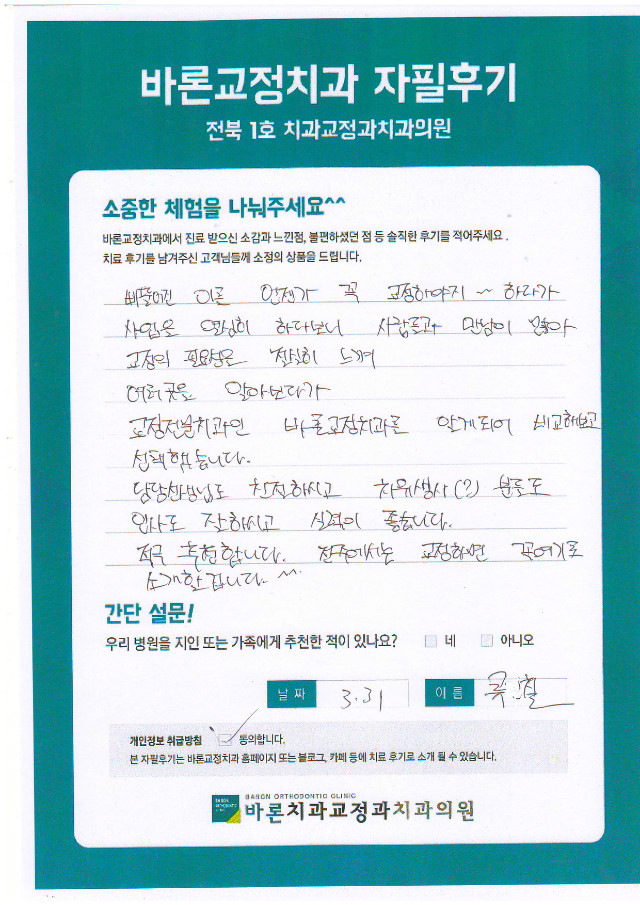 바론교정치과 자필후기
전북 1호 치과교정과치과의원
소중한 체험을 나눠주세요^^
바론교정치과에서 진료 받으신 소감과 느낀점, 불편하셨던 점 등 솔직한 후기를 적어주세요 .
치료 후기를 남겨주신 고객님들께 소정의 상품을 드립니다.
삐뚤어진 이를 언젠가 꼭 교정해야지 ~ 하다가
사업을 열심히 하다보니 사람들과 만남이 많아
교정의 필요성을 절실히 느껴
여러곳을 알아보다가
교정전문치과인 바론교정치과를 알게되어 비교해보고
선택했습니다.
담당선생님도 친절하시고 치위생사(?) 분들도
인사도 잘하시고 실력이 좋습니다.
적극 추천합니다. 전주에서는 교정하면 꼭여기를
소개할겁니다. ^^
간단 설문!
우리 병원을 지인 또는 가족에게 추천한 적이 있나요? 네 아니오
날 짜 3.31 이 름
개인정보 취급방침 동의합니다.
본 자필후기는 바론교정치과 홈페이지 또는 블로그, 카페 등에 치료 후기로 소개 될 수 있습니다.
BARON ORTHODONTIC CLINIC
바론치과교정과치과의원